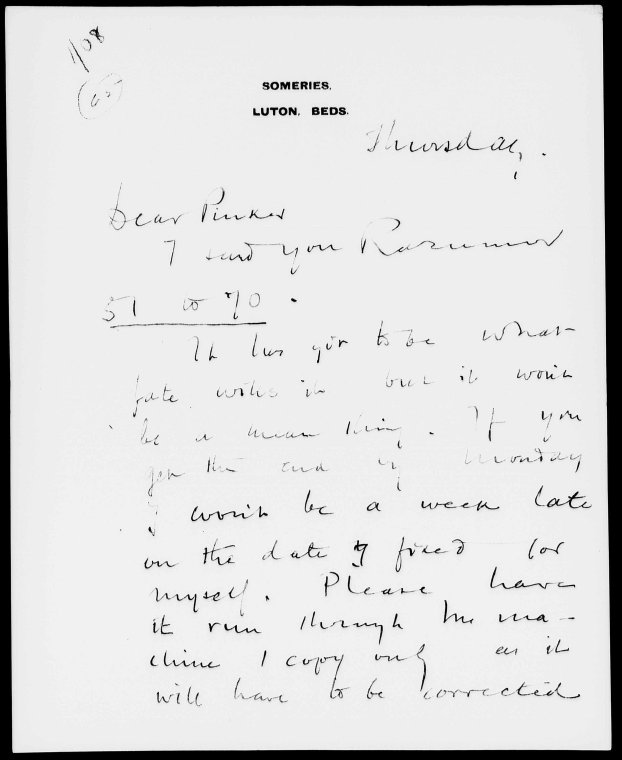 1/08
SOMERIES.
LUTON. BEDS.
Thursday.
Dear Pinker
I send you Razumov
51 to 70.
It has got to be what
fate wills it but it won't
be a mean thing. If you
get the end by Monday
I won't be a week late
on the date I fixed for
myself. Please have
it run through the ma-
chine 1 copy only as it
will have to be corrected